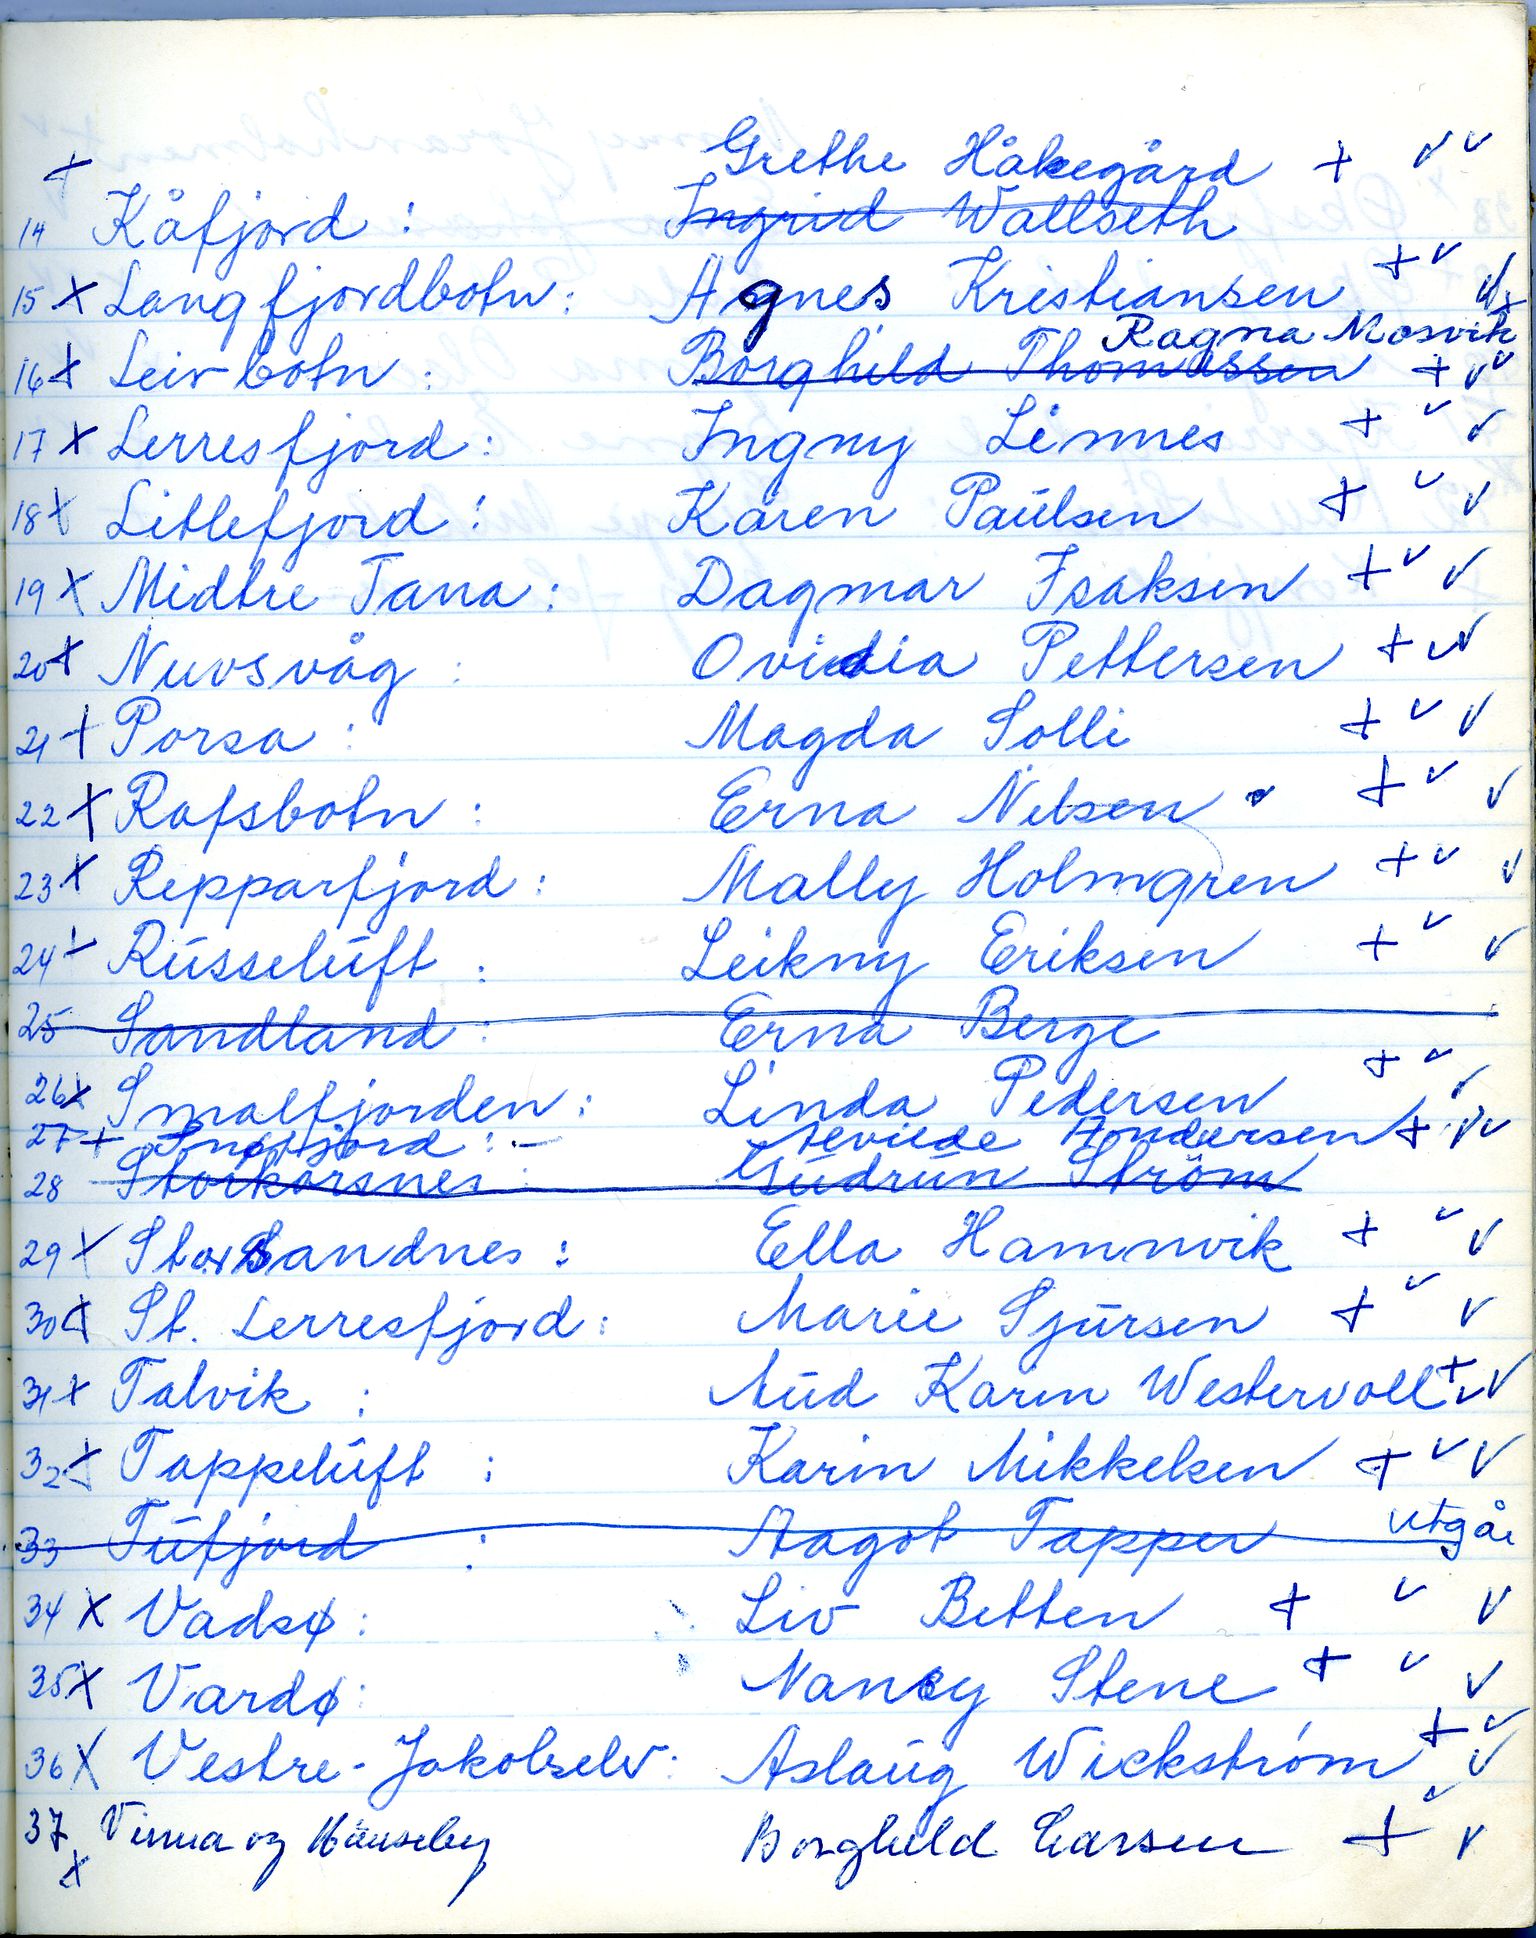 + Grethe Håkegård + v v
14 Kåfjord : Ingrid Wallseth
15 x Langfjordbotn : Agnes Kristiansen + v v
Ragna Mosvik
16 x Leirbotn : Borghild Thomassen + v v
17 x Lerresfjord : Ingny Linnes + v v
18 x Litlefjord : Karen Paulsen + v v
19 x Midtre Tana : Dagmar Isaksen + v v
20 x Nuvsvåg : Ovidia Pettersen + v v
21 + Porsa : Magda Solli + v v
22 x Rafsbotn : Erna Nilsen + v v
23 x Repparfjord : Mally Holmgren + v v
24 + Russeluft : Leikny Eriksen + v v
25 Sandland : Erna Berge
26 x Smalfjorden : Linda Pedersen + v v
27 + Snefjord : - Andersen + v v
28 Storkorsnes : Gudrun Strøm
29 x Storsandnes : Ella Hamnvik + v v
30 x St. Lerresfjord : Marie Sjursen + v v
31 x Talvik : Aud Karin Westervoll + v v
32 x Tappeluft : Karin Mikkelsen + v v
33 Tufjord : Aagot Tapper utgår
34 x Vadsø : Liv Betten + v v
35 x Vardø : Nancy Stene + v v
36 x Vestre - Jakobselv : Aslaug Wickstrøm + v v
37 x Vinna og Borghild Larsen + v v